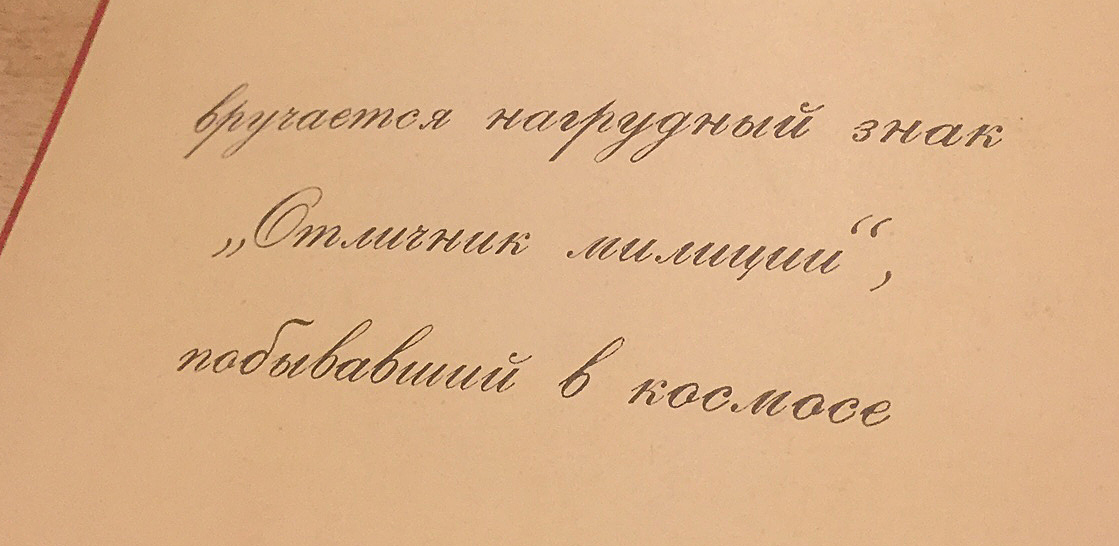 вручается нагрудный знак
„Отличник милиции“,
побывавший в космосе